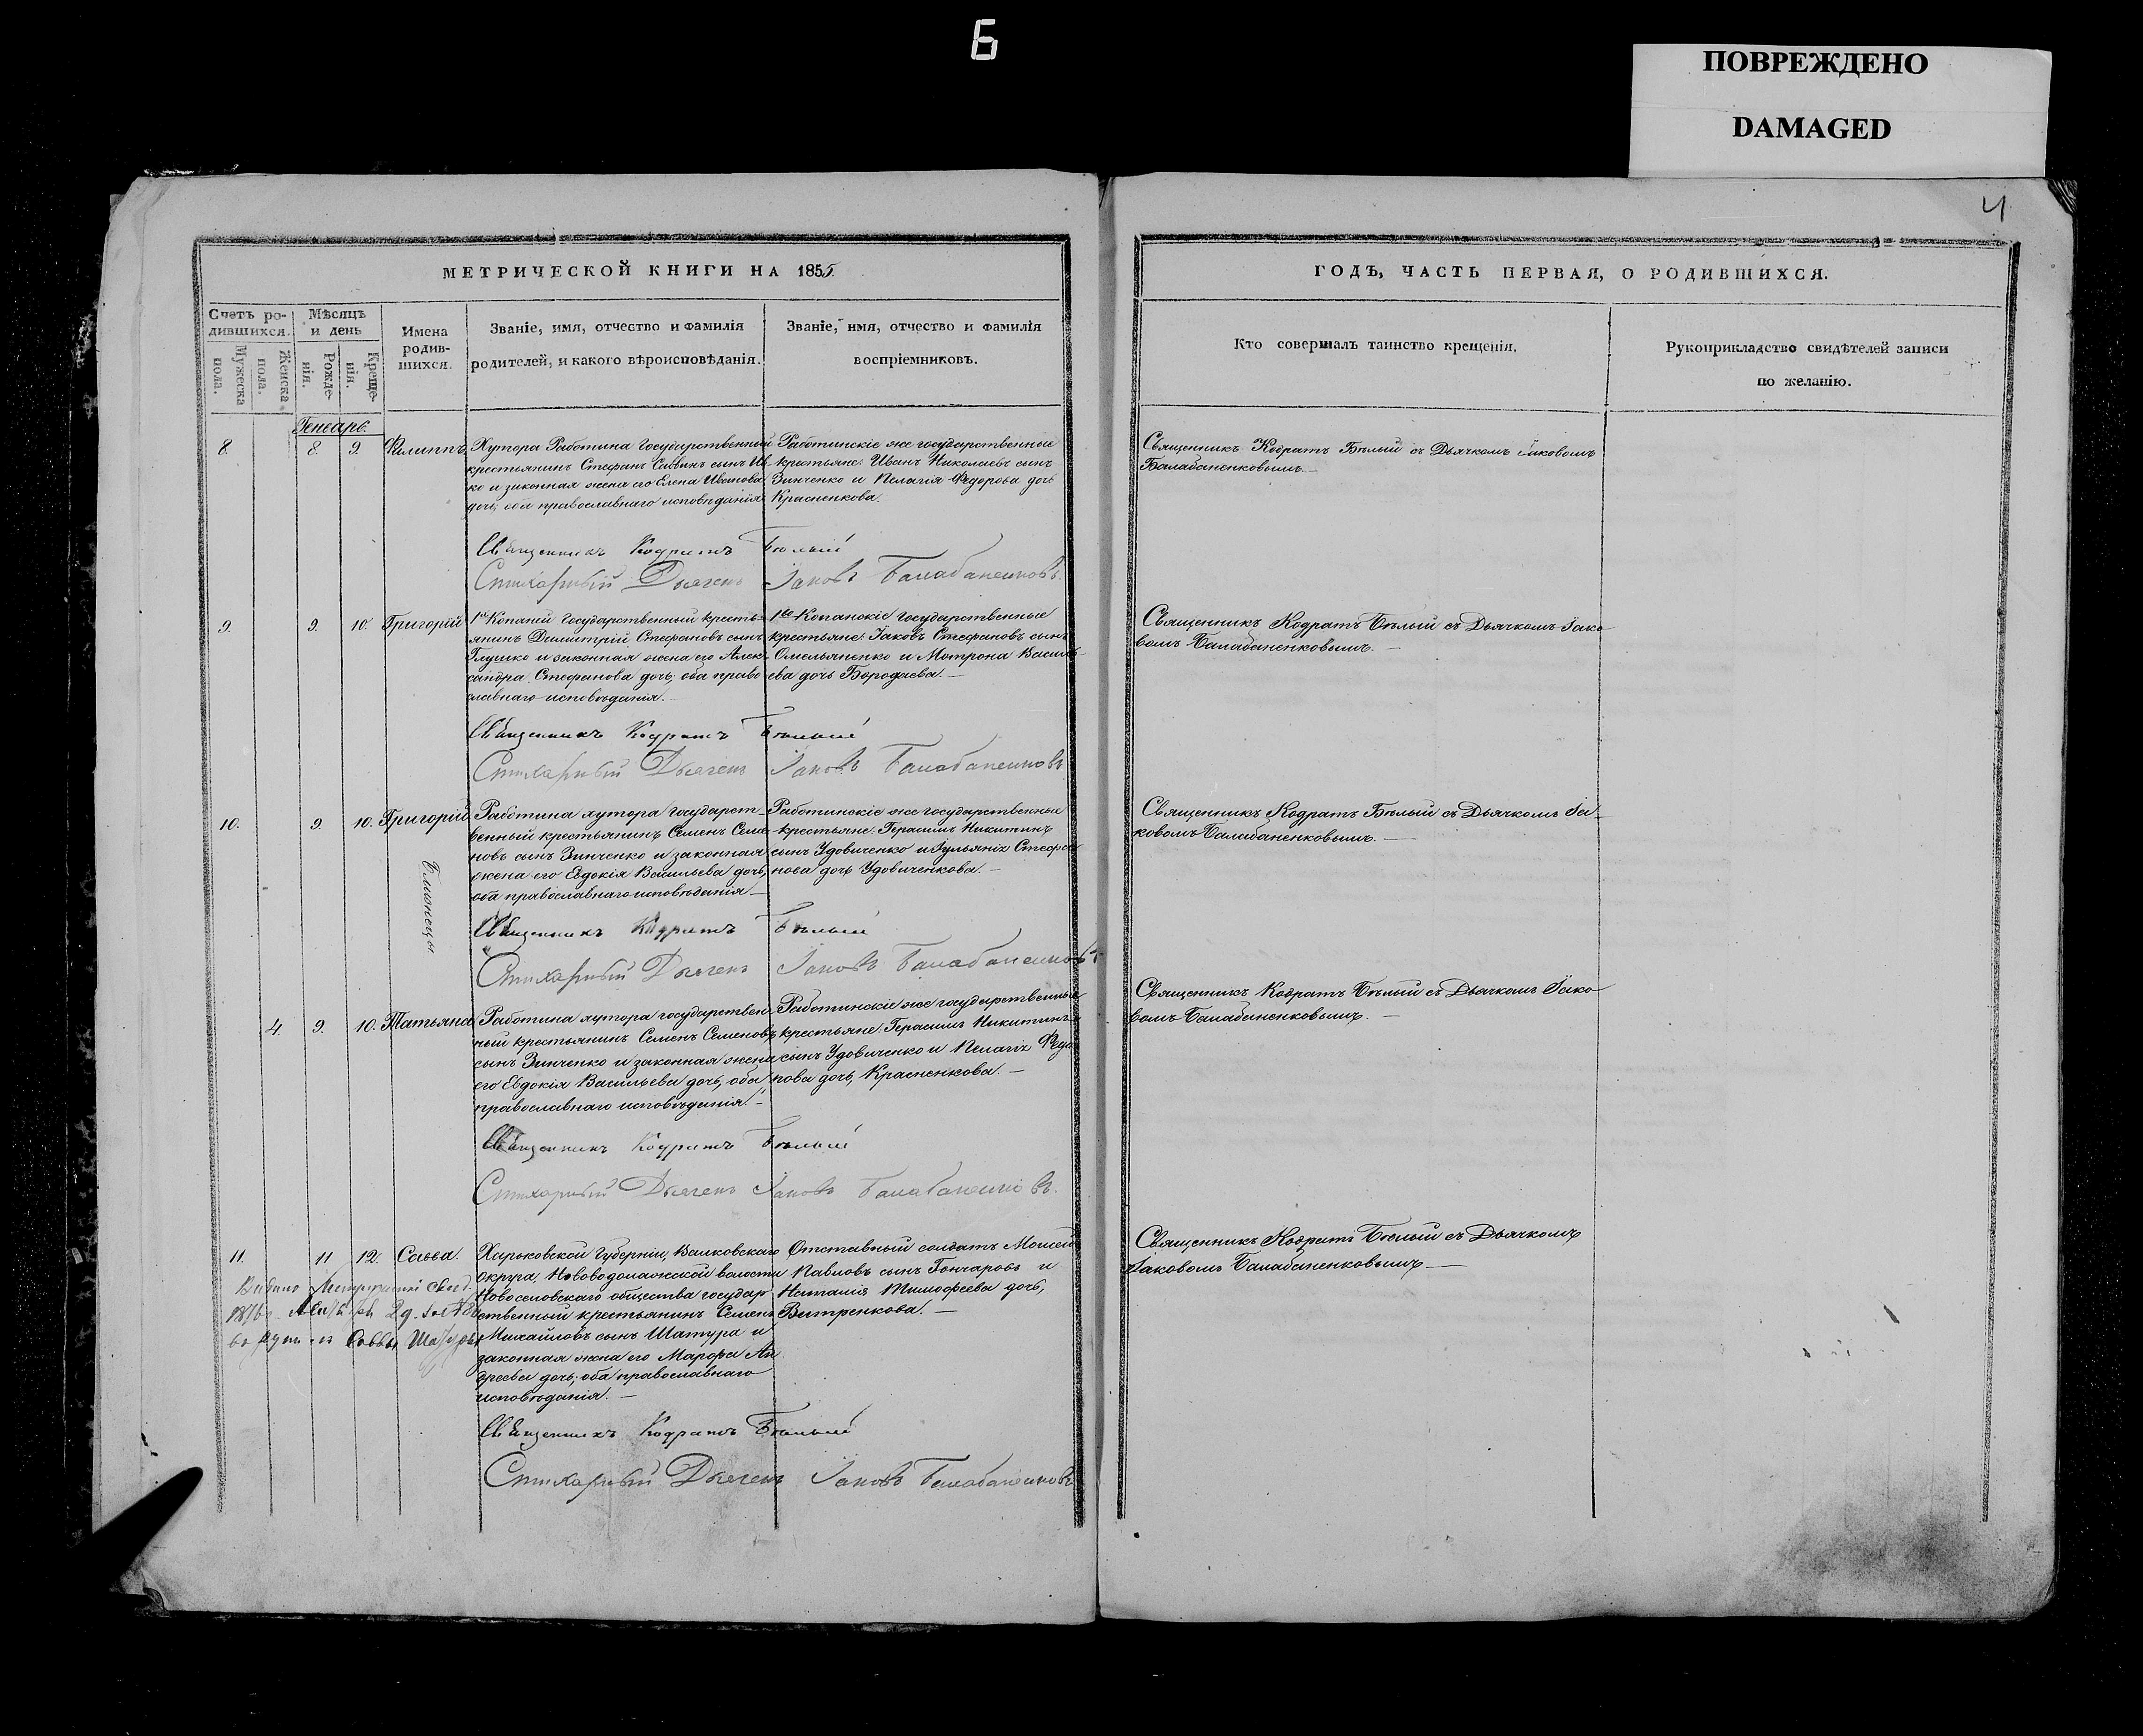 Б
ПОВРЕЖДЕНО
DAMAGED
4
МЕТРИЧЕСКОЙ КНИГИ НА 1855.
Счетъ ро-
дившихся.
Мужеска
пола.
Женска
пола.
Мѣсяцъ
и день
Рожде-
нія.
Креще-
нія.
Имена
родив-
шихся.
Званіе, имя, отчество и фамилія
родителей, и какого вѣроисповѣданія.
Званіе, имя, отчество и фамилія
воспріемниковъ.
Генварь.
8. 8. 9. Филиппъ
Хутора Работина Государственный
крестьянинъ Стефанъ Саввинъ сынъ
ко и законная жена его Елена Иванова
дочь; оба православнаго исповѣданія
Работинскіе же государственные
крестьяне: Иванъ Николаевъ сынъ
Зинченко и Пелагія Ѳедорова дочь
Красненкова.
Священникъ Кодратъ Бѣлый
Стихарный Дьячекъ Іаковъ Балабаненковъ
9. 9. 10. Григорій
Копаній Государственный кресть-
янинъ Димитрій Стефановъ сынъ
Глушко и законная жена его Алек-
сандра Стефанова дочь; оба право-
славнаго исповѣданія.
Копанскіе Государственные
крестьяне: Іаковъ Стефановъ сынъ
Омельяненко и Мотрона Василь-
ева дочь Бородаева.
Священникъ Кодратъ Бѣлый
Стихарный Дьячекъ Іаковъ Балабаненковъ
10. 9. 10. Григорій
Близнецы
Работина хутора Государст-
венный крестьянинъ Семенъ Семе-
новъ сынъ Зинченко и законная
жена его Евдокія Васильева дочь,
оба православнаго исповѣданія
Работинскіе же государственные
крестьяне: Герасимъ Никитинъ
сынъ Удовиченко и Іульянія Стефа-
нова дочь Удовиченкова.
Священникъ Кодратъ Бѣлый
Стихарный Дьячекъ Іаковъ Балабаненковъ
4 9. 10. Татьяна
Работина хутора государствен-
ный крестьянинъ Семенъ Семеновъ
сынъ Зинченко и законная жена
его Евдокія Васильева дочь, оба
православнаго исповѣданія.
Работинскіе же государственные
крестьяне: Герасимъ Никитинъ
сынъ Удовиченко и Пелагія
дочь, Красненкова.
Священникъ Кодратъ Бѣлый
Стихарный Дьячекъ Іаковъ Балабаненковъ.
11. 11 12. Савва.
Саввы
Харьковской Губерніи, Валковскаго
округа, Нововодолажской волости
Новоселовскаго общества государ-
ственный крестьянинъ Семенъ
Михайловъ сынъ Шатура и
законная жена его Марфа Ан-
дреева дочь; оба православнаго
исповѣданія.
Отставный солдатъ Моисей
Павловъ сынъ Гончаровъ и
Наталія Тимофеева дочь,
Витренкова.
Священникъ Кодратъ Бѣлый
Стихарный Дьячекъ Іаковъ Балабаненковъ
ГОДЪ, ЧАСТЬ ПЕРВАЯ, О РОДИВШИХСЯ.
Кто совершалъ таинство крещенія.
Рукоприкладство свидѣтелей записи
по желанію.
Священникъ Кодратъ Бѣлый съ Дьячкомъ Іаковомъ
Балабаненковымъ.
Священникъ Кодратъ Бѣлый съ Дьячкомъ Іако-
вомъ Балабаненковымъ.
Священникъ Кодратъ Бѣлый съ Дьячкомъ Іа-
ковомъ Балабаненковымъ.
Священникъ Кодратъ Бѣлый съ Дьячкомъ Іако-
вомъ Балабаненковымъ.
Священникъ Кодратъ Бѣлый съ Дьячкомъ
Іаковомъ Балабаненковымъ